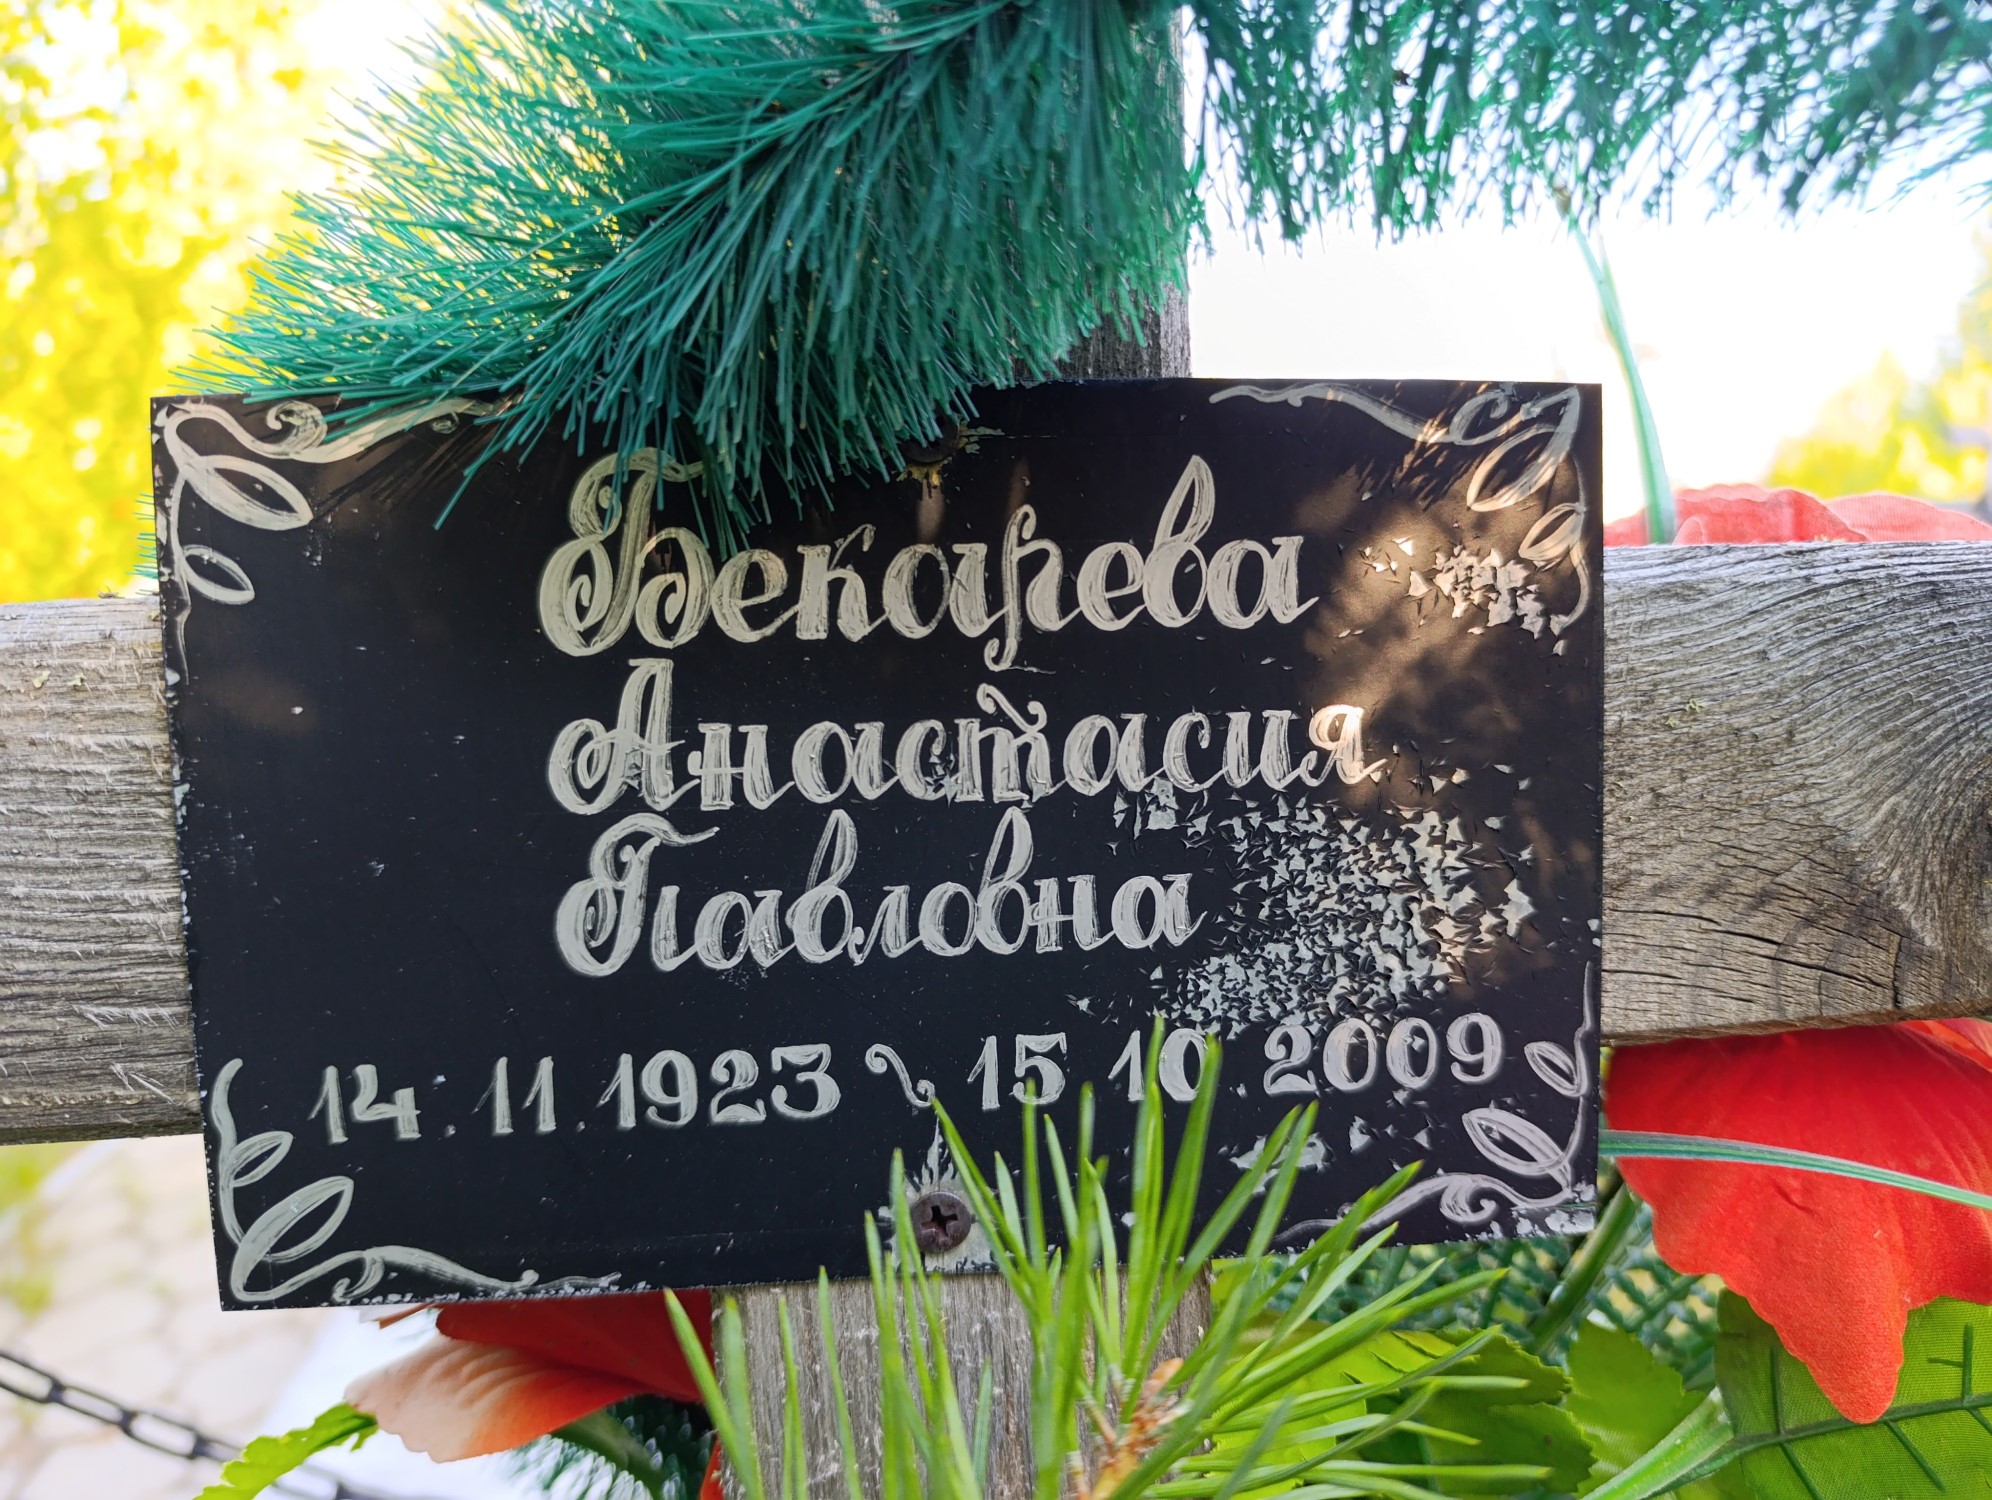 Бекарева
Анастасия
Павловна
14.11.1923 ~ 15.10.2009